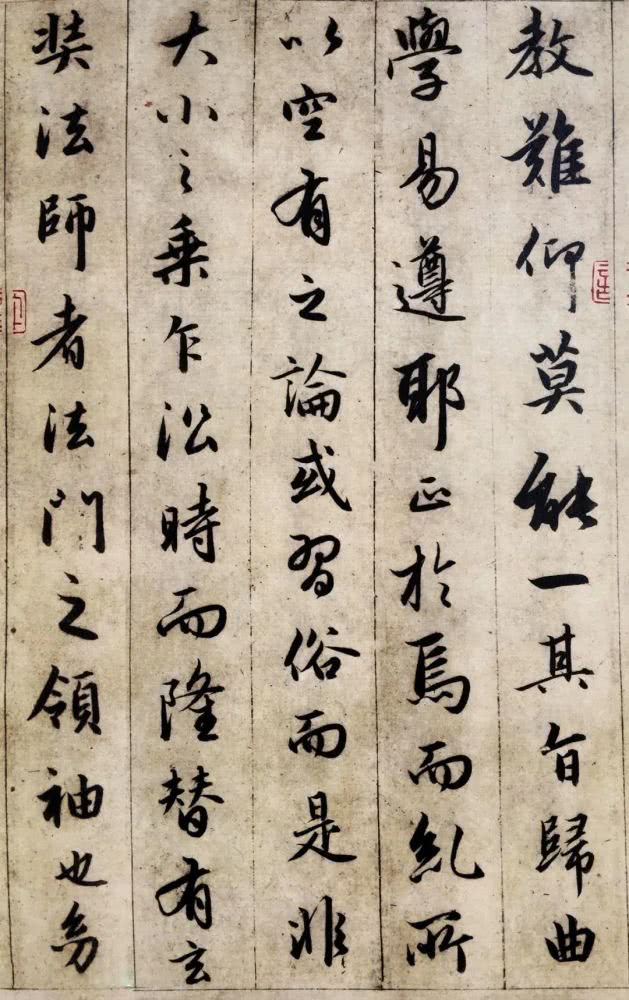 教難仰莫能一其旨歸曲
學易遵耶正於焉而糺所
以空有之論或習俗而是非
大小之乗乍沿時而隆替有玄
奘法師者法門之領袖也㓜